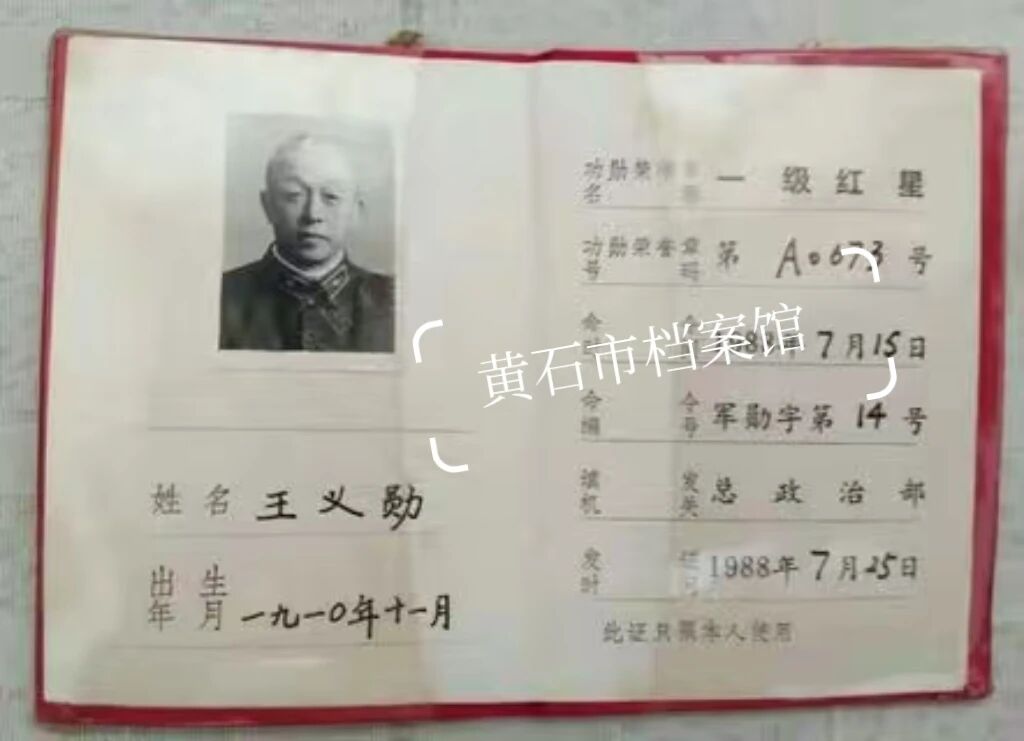 姓名 王义勋
出生年月 一九一〇年十一月
功勋荣誉章名称 一级红星
功勋荣誉章号码 第 A0673 号
命令 1988年7月15日
命令编号 军勋字第14号
填发机关 总政治部
发证时 1988年7月25日
此证只限本人使用
黄石市档案馆